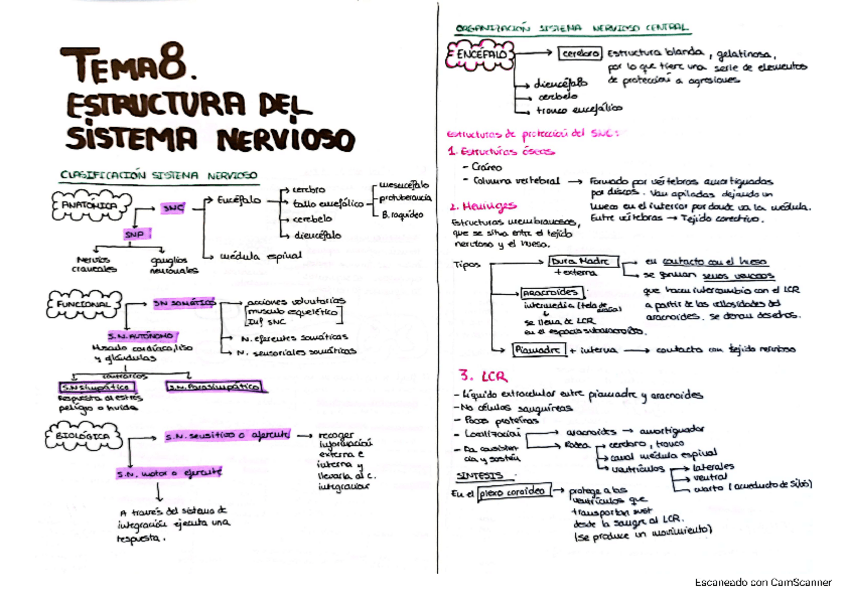 TEMA 8.
ESTRUCTURA DEL
SISTEMA NERVIOSO
CLASIFICACIÓN SISTEMA NERVIOSO
ANATÓMICA
SNC
Encéfalo
cerebro
tallo encefálico
mesencéfalo
protuberancia
B. raquídeo
cerebelo
diencéfalo
médula espinal
SNP
Nervios
craneales
ganglios
neuronales
FUNCIONAL
SN somático
acciones voluntarias
musculo esquelético
Inf SNC
N. eferentes somáticas
N. sensoriales somáticas
S.N. AUTÓNOMO
Musculo cardíaco, liso
y glándulas
contrarios
S.N simpático
Respuesta al estrés
peligro o huida
S.N. Parasimpático
BIOLÓGICA
S.N. sensitivo o aferente
recoger
información
externa e
interna y
llevarla al c.
integrador
S.N. motor o eferente
A través del sistema de
integración ejecuta una
respuesta.
ORGANIZACIÓN SISTEMA NERVIOSO CENTRAL
ENCÉFALO
cerebro
Estructura blanda, gelatinosa,
por lo que tiene una serie de elementos
de protección a agresiones
diencéfalo
cerebelo
tronco encefálico
Estructuras de protección del SNC:
1. Estructuras óseas
- Cráneo
- Columna vertebral → Formado por vértebras amortiguadas
por discos. Van apiladas dejando un
hueco en el interior por donde va la médula.
Entre vértebras → Tejido conectivo.
2. Meninges
Estructuras membranosas,
que se sitúa entre el tejido
nervioso y el hueso.
Tipos
Dura Madre
+ externa
en contacto con el hueso
se forman senos venosos
que hacen intercambio con el LCR
a partir de las vellosidades del
aracnoides. Se drenan desechos.
Aracnoides
intermedia (tela de araña)
se llena de LCR
en el espacio subaracnoideo.
Piamadre + interna → contacto con tejido nervioso
3. LCR
- Líquido extracelular entre piamadre y aracnoides
- No células sanguíneas
- Pocas proteínas
- Localización
aracnoides → amortiguador
Rodea
cerebro, tronco
canal médula espinal
ventrículos
laterales
cuarto (acueducto de Silvio)
- Da consistencia y sostén
SÍNTESIS
En el plexo coroideo
protege a los
ventrículos que
transportan sust
desde la sangre al LCR.
(se produce un movimiento)
Escaneado con CamScanner